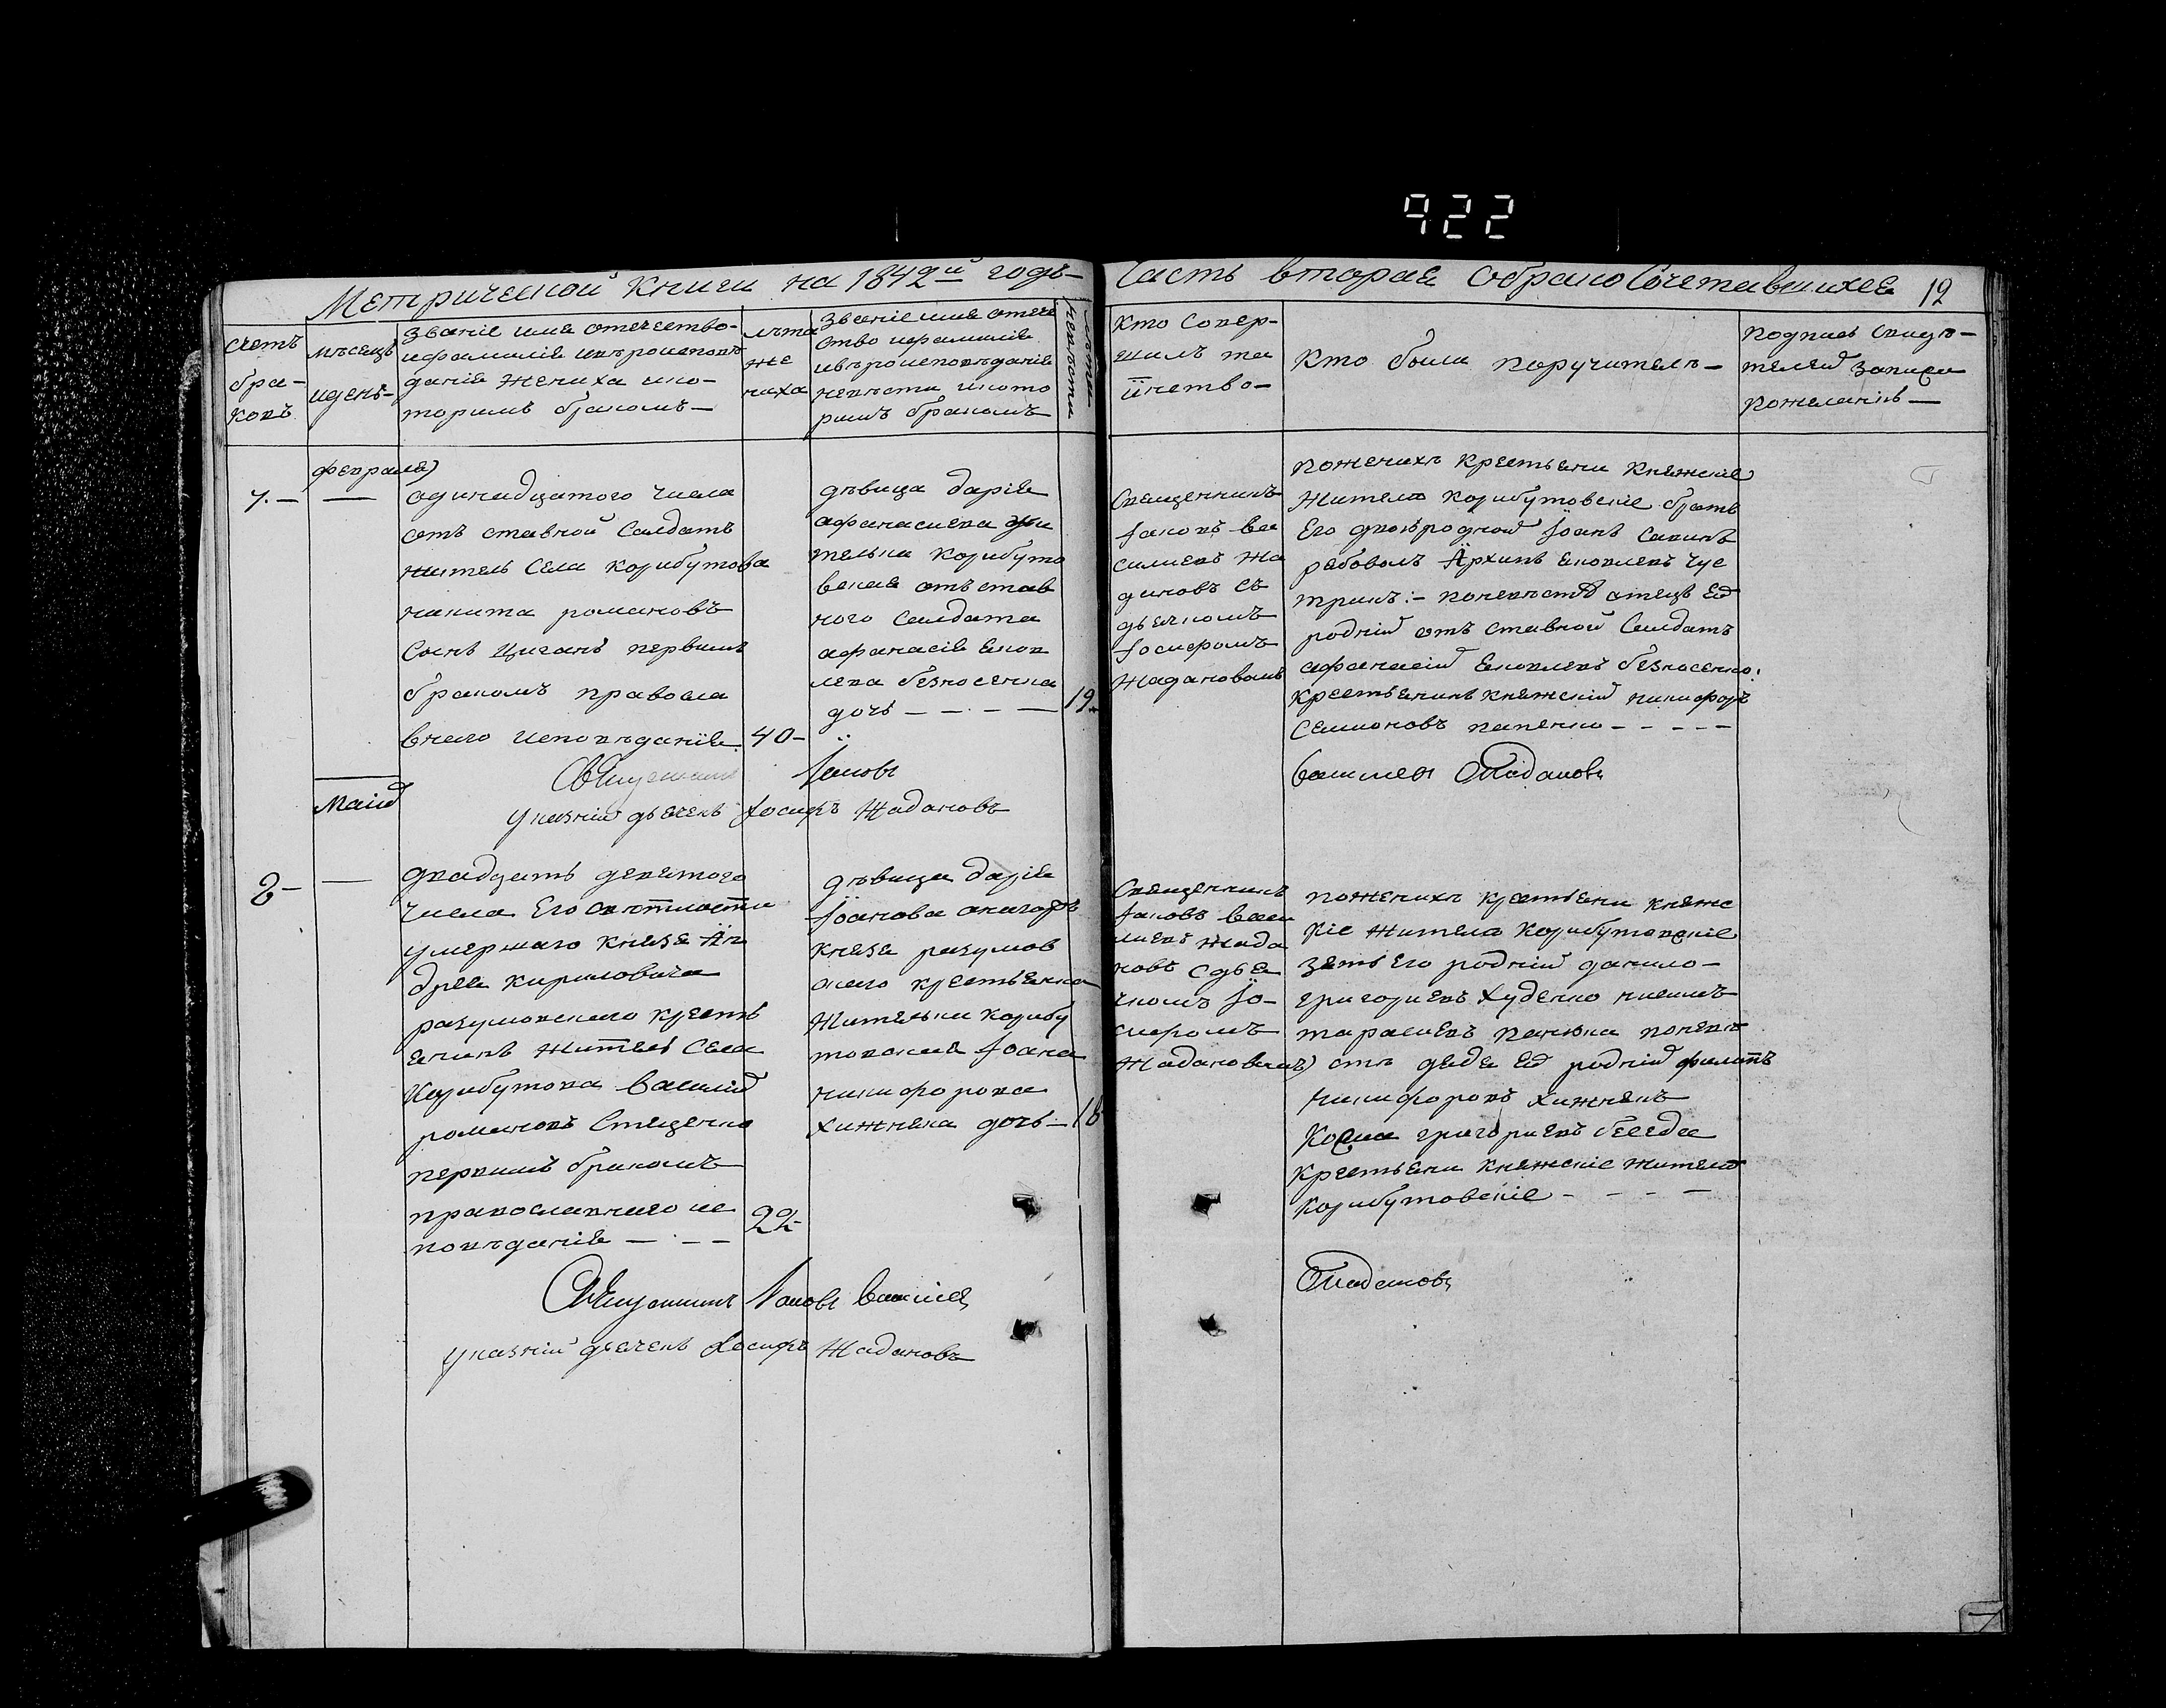 922
Метрической книги на 1842й годъ—
Часть вторая о бракосочетавшихся 12
счетъ
бра-
ковъ
мѣсецъ
и день-
званіе имя отечество-
и фамилія и вѣроисповѣ
данія жениха и ко-
торимъ бракомъ—
лѣта
же
ниха
званіе имя отече
ство и фамилія
и вѣроисповѣданія
невѣсти и кото
римъ бракомъ
лѣта
невѣсти
кто совер-
шилъ та
инство-
кто были поручители-
подпись свидѣ-
телей записи
по желанію—
февраля
7.— —
одинадцатого числа
отъ ставной Салдатъ
житель Села Корибутова
никита романовъ
Синъ Циганъ первимъ
бракомъ правосла
внаго исповѣданія
40-
дѣвица дарія
афанасиева жи
телька Корибуто
вская отъ став
ного Салдата
афанасія яков
лева безносенка
дочь — — — —
19
Священникъ
Іаковъ Ва
силиевъ Жа
дановъ съ
дьячкомъ
Іосифомъ
Жадановимъ
по женихѣ крестьяни княжскіе
жители Корибутовскіе братъ
Его двоюродной Іоанъ Савинъ
рябоволъ Архипъ яковлевъ Чус
трикъ:- по невѣстѣ отецъ Ея
родній отъ ставной Салдатъ
афанасій яковлевъ безносенко:
крестьянинъ княжскій никифоръ
Семионовъ папенко - - - - -
Священникъ Іаковъ Василиев Жадановъ
указній дьячекъ Іосифъ Жадановъ
Маія
8- —
двадцать девятого
числа Его Свѣтлости
умершаго князя Ан
дрея кириловича
разумовскаго кресть
янинъ житель Села
Корибутова Василій
романовъ Стеценко
первимъ бракомъ
православнаго ис
повѣданія — . — —
22-
дѣвица дарія
Іоанова онагожъ
князя разумов
скаго крестьянка
жителька Корибу
товская Іоана
никифорова
хижняка дочь-
18
Священникъ
Іаковъ Васи
лиевъ Жада
новъ с дья
чкомъ Іо-
сифомъ
Жадановимъ
по женихѣ крестьяни княжс
кіе жители Корибутовскіе
зять Его родній данило-
григориевъ худенко
тарасиевъ панюка по невѣ
стѣ дядя Ея родній филипъ
никифоровъ хижнякъ
Косма григориевъ беседа
крестьяни княжскіе жители
Корибутовскіе - - - -
Священникъ Іаковъ Василиев Жадановъ
указній дьячекъ Іосифъ Жадановъ